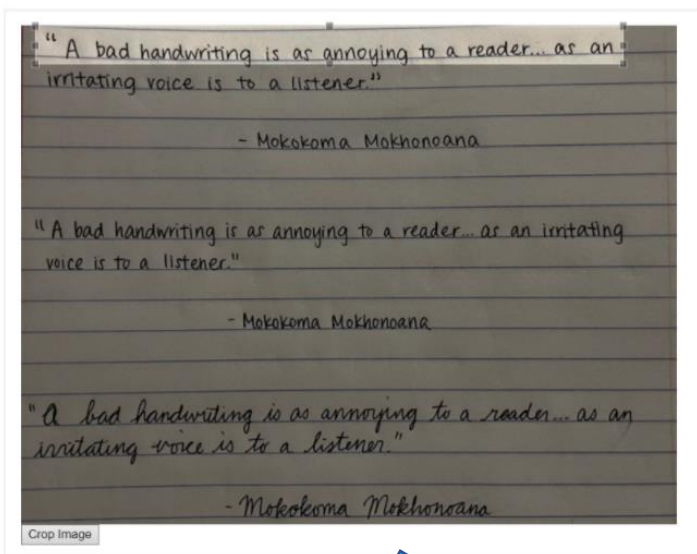 “ A bad handwriting is as annoying to a reader... as an
irritating voice is to a listener.”
- Mokokoma Mokhonoana
" A bad handwriting is as annoying to a reader... as an irritating
voice is to a listener."
- Mokokoma Mokhonoana
"A bad handwriting is as annoying to a reader... as an
irritating voice is to a listener."
- Mokokoma Mokhonoana
Crop Image